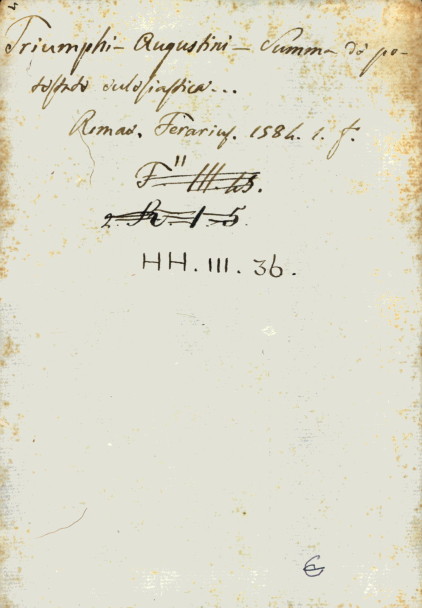 Triumphi – Augustini – Summa de po-
testate ecclesiastica...
Romae. Ferarius. 1584. 1. f.
F" III. 45.
2. R. I. 5.
HH. III. 36.
6